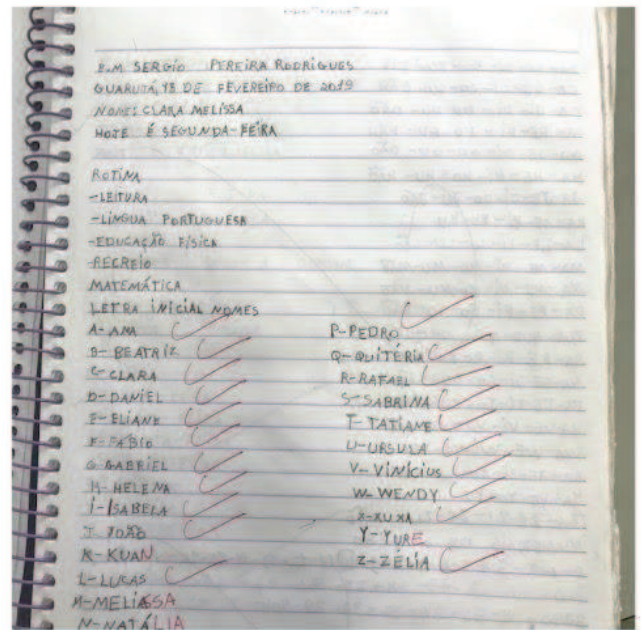 E.M SERGIO PEREIRA RODRIGUES
GUARUJÁ, 18 DE FEVEREIRO DE 2019
NOME: CLARA MELISSA
HOJE É SEGUNDA-FEIRA
ROTINA
-LEITURA
-LÍNGUA PORTUGUESA
-EDUCAÇÃO FÍSICA
-RECREIO
MATEMÁTICA
LETRA INICIAL NOMES
A-ANA
B-BEATRIZ
C-CLARA
D-DANIEL
E-ELIANE
F-FÁBIO
G-GABRIEL
H-HELENA
I-ISABELA
J-JOÃO
K-KUAN
L-LUCAS
M-MELISSA
N-NATÁLIA
P-PEDRO
Q-QUITÉRIA
R-RAFAEL
S-SABRINA
T-TATIANE
U-URSULA
V-VINÍCIUS
W-WENDY
X-XUXA
Y-YURE
Z-ZÉLIA